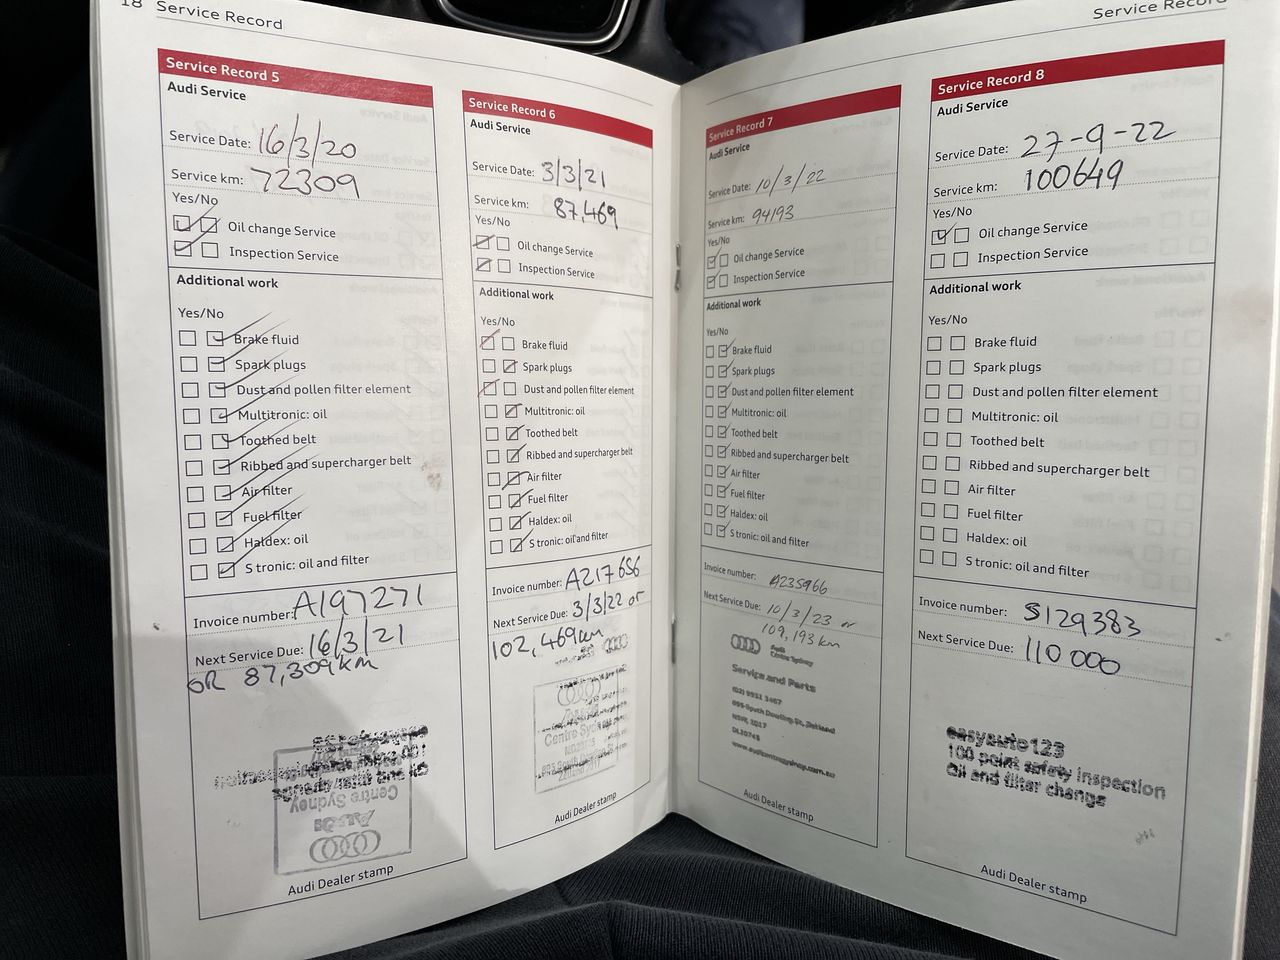 18 Service Record
Service Record 5
Audi Service
Service Date: 16/3/20
Service km: 72309
Yes/No
Oil change Service
Inspection Service
Additional work
Yes/No
Brake fluid
Spark plugs
Dust and pollen filter element
Multitronic: oil
Toothed belt
Ribbed and supercharger belt
Air filter
Fuel filter
Haldex: oil
S tronic: oil and filter
Invoice number: A197271
Next Service Due: 16/3/21
OR 87,309km
Centre Sydney
Audi
Audi Dealer stamp
Service Record 6
Audi Service
Service Date: 3/3/21
Service km: 87,469
Yes/No
Oil change Service
Inspection Service
Additional work
Yes/No
Brake fluid
Spark plugs
Dust and pollen filter element
Multitronic: oil
Toothed belt
Ribbed and supercharger belt
Air filter
Fuel filter
Haldex: oil
S tronic: oil and filter
Invoice number: A217656
Next Service Due: 3/3/22 or
102,469km
Centre Sydney
Audi Dealer stamp
Service Record
Service Record 7
Audi Service
Service Date: 10/3/22
Service km: 94193
Yes/No
Oil change Service
Inspection Service
Additional work
Yes/No
Brake fluid
Spark plugs
Dust and pollen filter element
Multitronic: oil
Toothed belt
Ribbed and supercharger belt
Air filter
Fuel filter
Haldex: oil
S tronic: oil and filter
Invoice number: A235966
Next Service Due: 10/3/23 or
109,193 km
Audi
Centre Sydney
Service and Parts
NSW, 2017
Audi Dealer stamp
Service Record 8
Audi Service
Service Date: 27-9-22
Service km: 100649
Yes/No
Oil change Service
Inspection Service
Additional work
Yes/No
Brake fluid
Spark plugs
Dust and pollen filter element
Multitronic: oil
Toothed belt
Ribbed and supercharger belt
Air filter
Fuel filter
Haldex: oil
S tronic: oil and filter
Invoice number: S129383
Next Service Due: 110 000
easyauto123
100 point safety inspection
Oil and filter change
Audi Dealer stamp